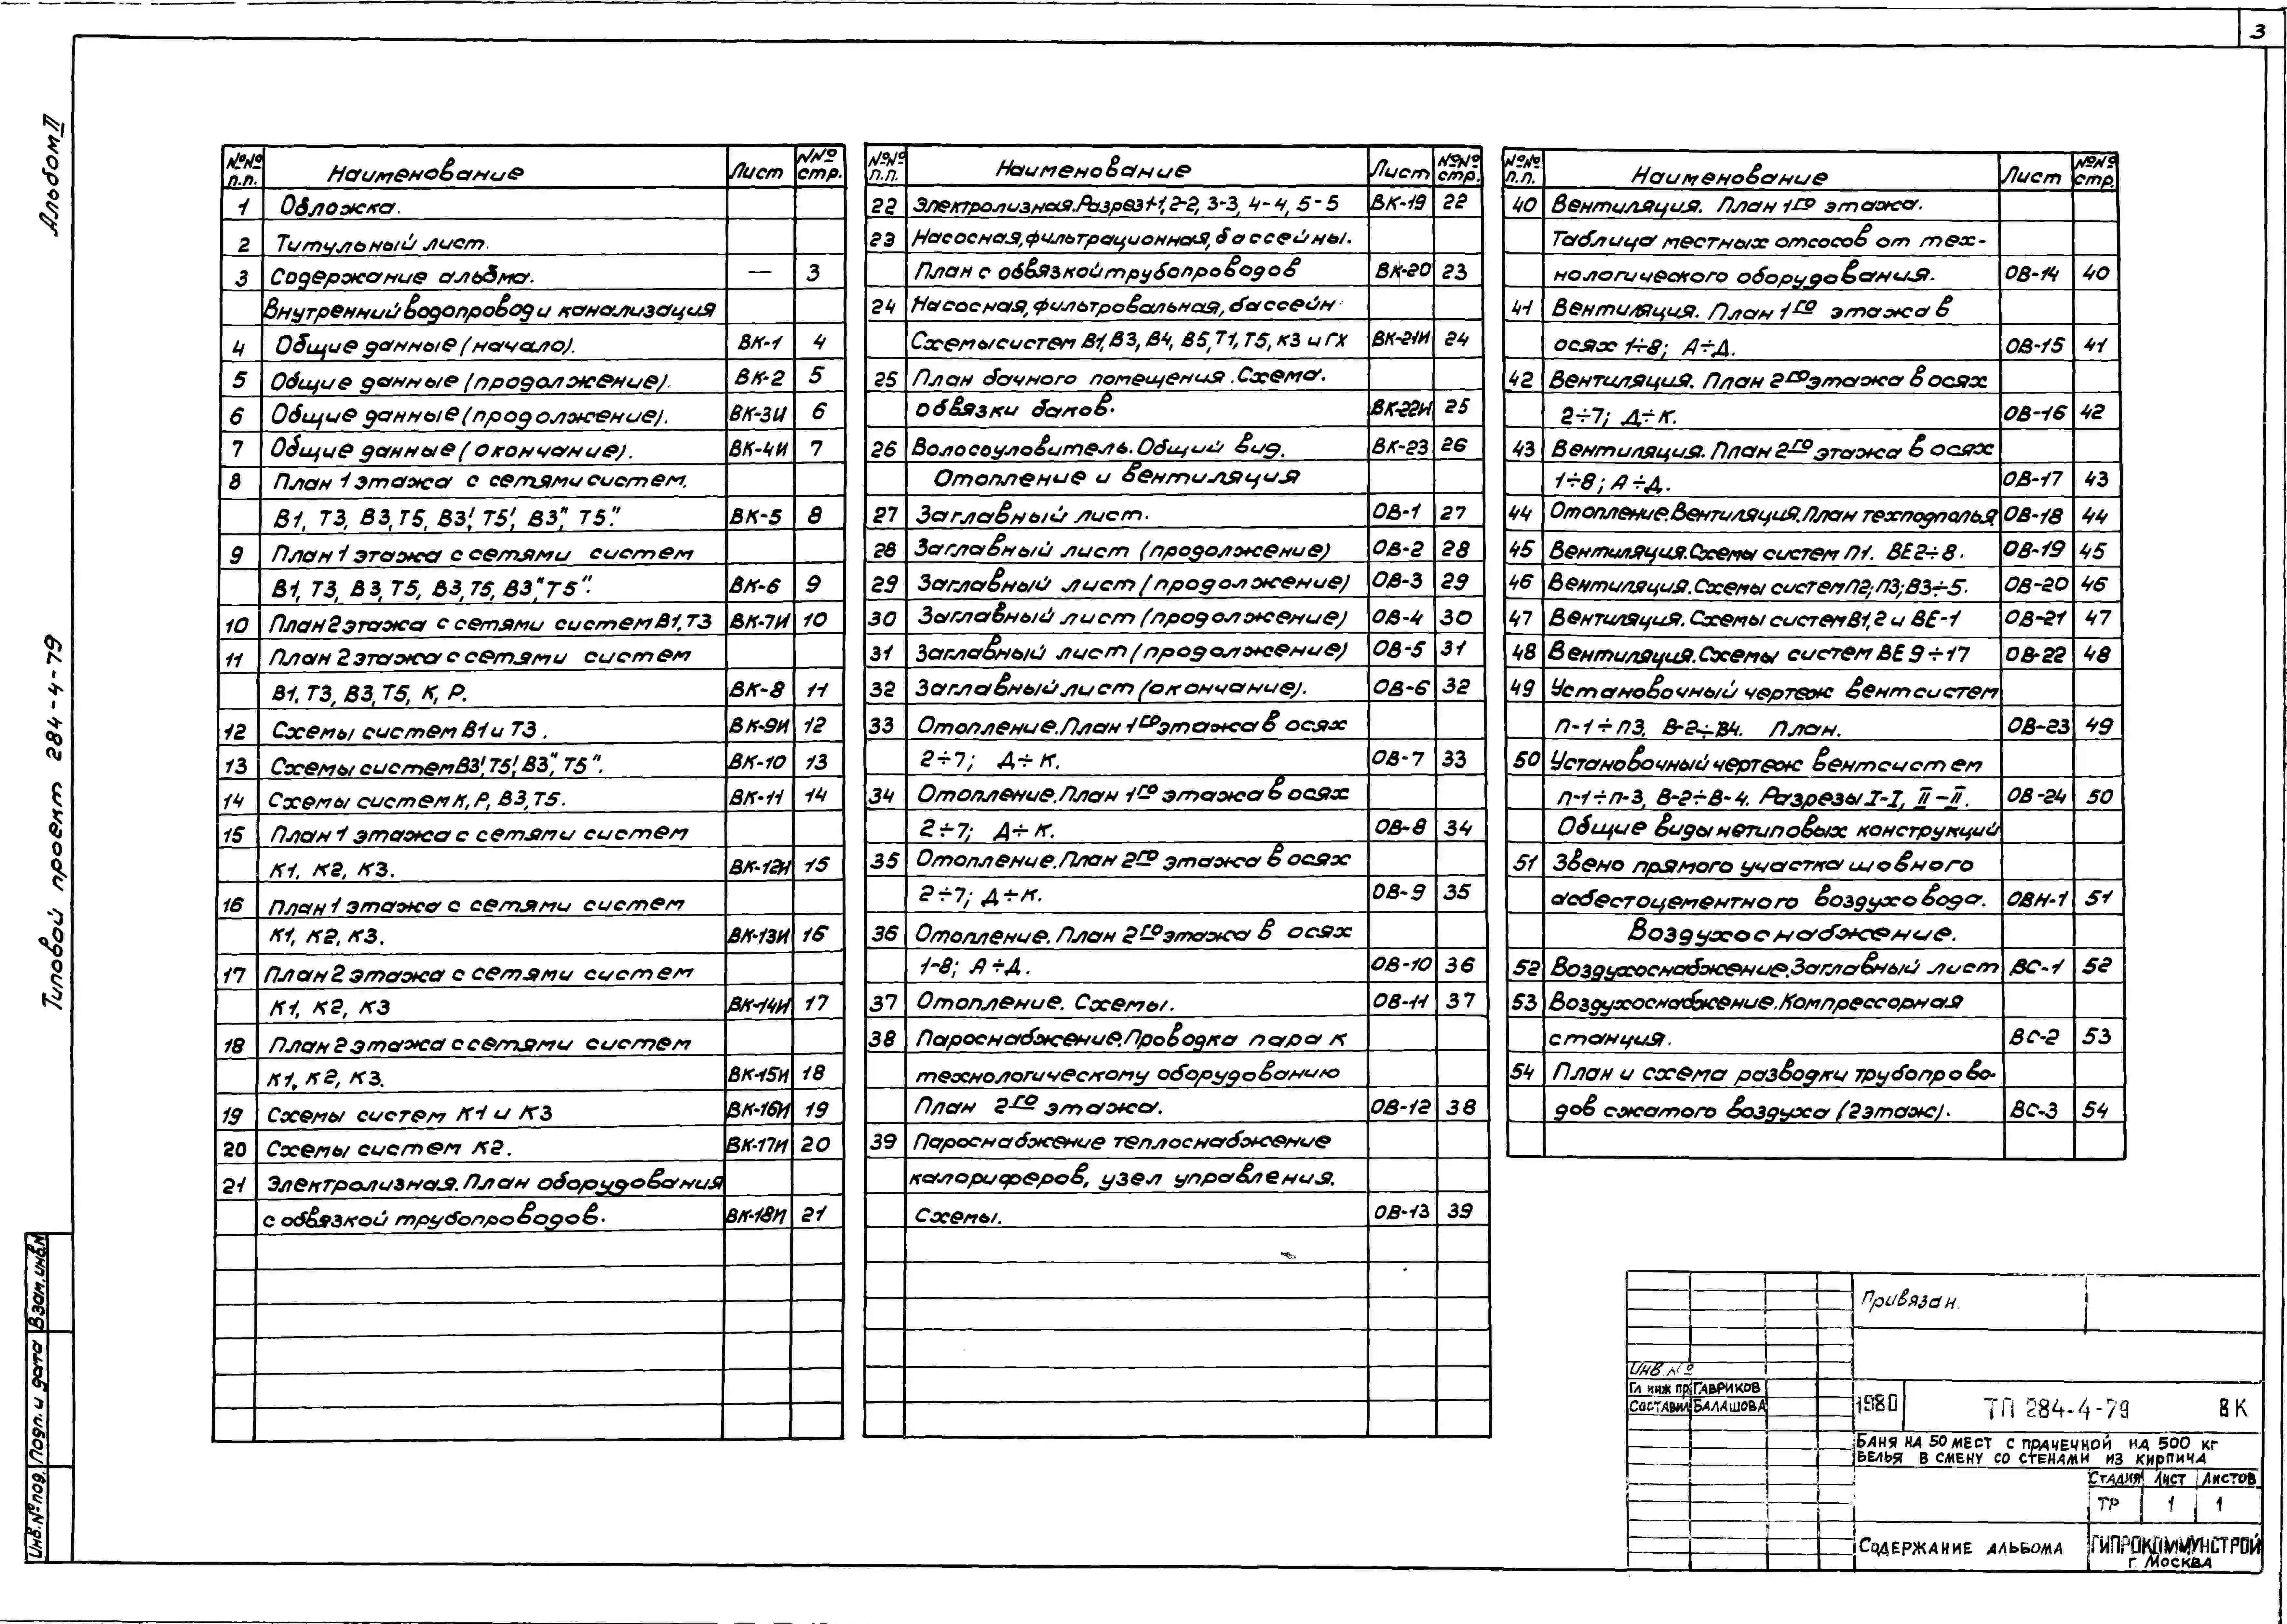 3
Альбом II
Типовой проект 284-4-79
Инв.№ под. Подп. и дата Взам.инв.№
№№ п.п. Наименование Лист №№ стр.
1 Обложка.
2 Титульный лист.
3 Содержание альбма. — 3
Внутренний водопровод и канализация
4 Общие данные (начало). ВК-1 4
5 Общие данные (продолжение). ВК-2 5
6 Общие данные (продолжение). ВК-3И 6
7 Общие данные (окончание). ВК-4И 7
8 План 1 этажа с сетями систем.
В1, Т3, В3, Т5, В3', Т5', В3", Т5".
ВК-5 8
9 План 1 этажа с сетями систем
В1, Т3, В3, Т5, В3, Т5, В3" Т5". ВК-6 9
10 План 2 этажа с сетями систем В1, Т3 ВК-7И 10
11 План 2 этажа с сетями систем
В1, Т3, В3, Т5, К, Р. ВК-8 11
12 Схемы систем В1 и Т3. ВК-9И 12
13 Схемы систем В3', Т5', В3", Т5". ВК-10 13
14 Схемы систем К, Р, В3, Т5. ВК-11 14
15 План 1 этажа с сетями систем
К1, К2, К3. ВК-12И 15
16 План 1 этажа с сетями систем
К1, К2, К3. ВК-13И 16
17 План 2 этажа с сетями систем
К1, К2, К3 ВК-14И 17
18 План 2 этажа с сетями систем
К1, К2, К3. ВК-15И 18
19 Схемы систем К1 и К3 ВК-16И 19
20 Схемы систем К2. ВК-17И 20
21 Электролизная. План оборудования
с обвязкой трубопроводов. ВК-18И 21
№№ п.п. Наименование Лист №№ стр.
22 Электролизная. Разрез 1-1, 2-2, 3-3, 4-4, 5-5 ВК-19 22
23 Насосная, фильтрационная, бассейны.
План с обвязкой трубопроводов ВК-20 23
24 Насосная, фильтровальная, бассейн
Схемы систем В1, В3, В4, В5, Т1, Т5, К3 и ГХ ВК-21И 24
25 План бачного помещения. Схема.
обвязки баков. ВК-22И 25
26 Волосоуловитель. Общий вид. ВК-23 26
Отопление и вентиляция
27 Заглавный лист. ОВ-1 27
28 Заглавный лист (продолжение) ОВ-2 28
29 Заглавный лист (продолжение) ОВ-3 29
30 Заглавный лист (продолжение) ОВ-4 30
31 Заглавный лист (продолжение) ОВ-5 31
32 Заглавный лист (окончание). ОВ-6 32
33 Отопление. План 1го этажа в осях
2÷7; Д÷К. ОВ-7 33
34 Отопление. План 1го этажа в осях
2÷7; Д÷К. ОВ-8 34
35 Отопление. План 2го этажа в осях
2÷7; Д÷К. ОВ-9 35
36 Отопление. План 2го этажа в осях
1-8; А÷Д. ОВ-10 36
37 Отопление. Схемы. ОВ-11 37
38 Пароснабжение. Проводка пара к
технологическому оборудованию
План 2го этажа. ОВ-12 38
39 Пароснабжение теплоснабжение
калориферов, узел управления.
Схемы. ОВ-13 39
№№ п.п. Наименование Лист №№ стр.
40 Вентиляция. План 1го этажа.
Таблица местных отсосов от тех-
нологического оборудования. ОВ-14 40
41 Вентиляция. План 1го этажа в
осях 1÷8; А÷Д. ОВ-15 41
42 Вентиляция. План 2го этажа в осях
2÷7; Д÷К. ОВ-16 42
43 Вентиляция. План 2го этажа в осях
1÷8; А÷Д. ОВ-17 43
44 Отопление. Вентиляция. План техподполья ОВ-18 44
45 Вентиляция. Схемы систем П1. ВЕ2÷8. ОВ-19 45
46 Вентиляция. Схемы систем П2; П3; В3÷5. ОВ-20 46
47 Вентиляция. Схемы систем В1,2 и ВЕ-1 ОВ-21 47
48 Вентиляция. Схемы систем ВЕ 9÷17 ОВ-22 48
49 Установочный чертеж вентсистем
П-1÷П3, В-2÷В4. План. ОВ-23 49
50 Установочный чертеж вентсистем
П-1÷П-3, В-2÷В-4. Разрезы I-I, II-II. ОВ-24 50
Общие виды нетиповых конструкций
51 Звено прямого участка шовного
асбестоцементного воздуховода. ОВН-1 51
Воздухоснабжение.
52 Воздухоснабжение. Заглавный лист ВС-1 52
53 Воздухоснабжение. Компрессорная
станция. ВС-2 53
54 План и схема разводки трубопрово-
дов сжатого воздуха (2 этаж). ВС-3 54
Привязан.
Инв.№
Гл инж пр ГАВРИКОВ
СОСТАВИЛ БАЛАШОВА
1980 ТП 284-4-79 ВК
БАНЯ НА 50 МЕСТ С ПРАЧЕЧНОЙ НА 500 КГ
БЕЛЬЯ В СМЕНУ СО СТЕНАМИ ИЗ КИРПИЧА
СТАДИЯ ЛИСТ ЛИСТОВ
ТР 1 1
СОДЕРЖАНИЕ АЛЬБОМА
ГИПРОКОММУНСТРОЙ
Г. МОСКВА